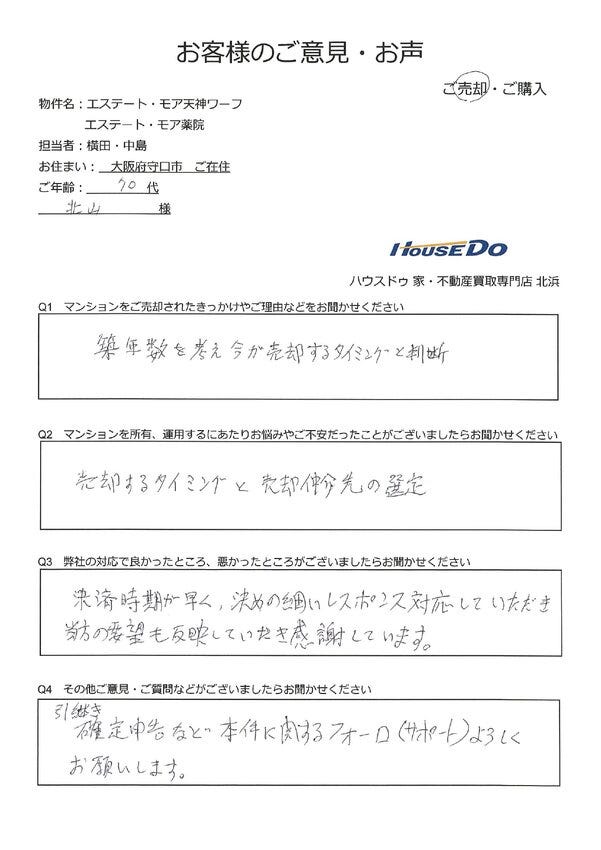 お客様のご意見・お声
ご売却・ご購入
物件名：エステート・モア天神ワーフ
エステート・モア薬院
担当者：横田・中島
お住まい：　大阪府守口市　ご在住
ご年齢：　70　代
北山　様
HOUSEDO
ハウスドゥ 家・不動産買取専門店 北浜
Q1　マンションをご売却されたきっかけやご理由などをお聞かせください
築年数を考え今が売却するタイミングと判断
Q2　マンションを所有、運用するにあたりお悩みやご不安だったことがございましたらお聞かせください
売却するタイミングと売却仲介先の選定
Q3　弊社の対応で良かったところ、悪かったところがございましたらお聞かせください
決済時期が早く、決めの細いレスポンス対応していただき
当方の要望も反映していたき感謝しています。
Q4　その他ご意見・ご質問などがございましたらお聞かせください
引継き
確定申告など本件に関するフォーロ（サポート）よろしく
お願いします。